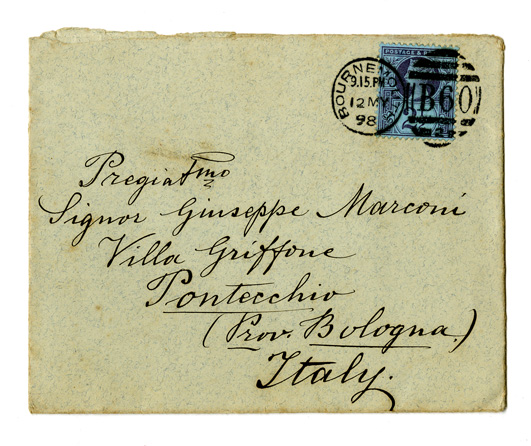 POSTAGE & R
BOURNEMO
9.15.PM
12 MY
98
B60
Pregiatmo
Signor Giuseppe Marconi
Villa Griffone
Pontecchio
(Prov. Bologna.)
Italy.